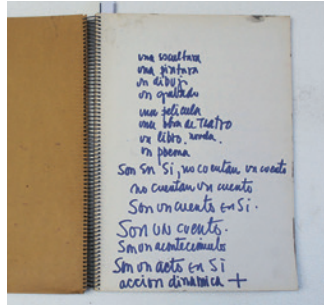 una escultura
una pintura
un dibujo
un grabado
una pelicula
una obra de teatro
un libro, novela.
un poema
Son en Si, no cuentan un cuento
no cuentan un cuento
Son un cuento en Si.
Son un cuento.
Son un acontecimiento
Son un acto en Si
accion dinamica +